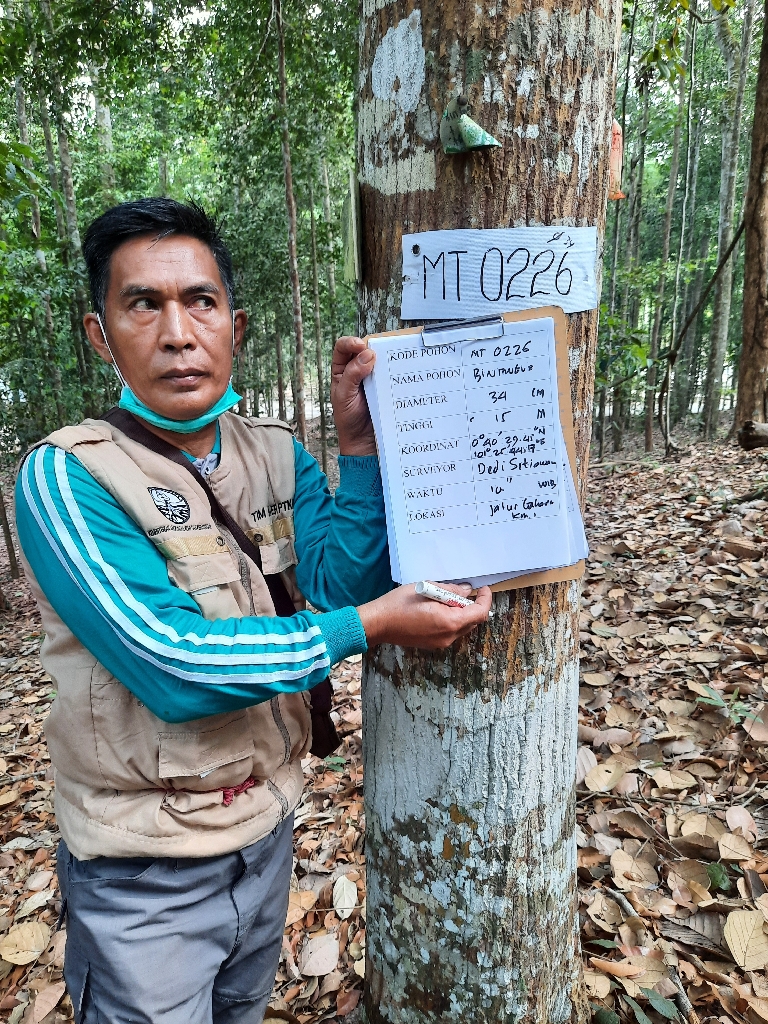 MT 0226
KODE POHON MT 0226
NAMA POHON BINTANGUR
DIAMETER 34 CM
TINGGI 15 M
KOORDINAT 0°40'29.41"N
101°25'44.17"E
SURVEYOR Dedi Setiawan
WAKTU 10 WIB
LOKASI Jalur Gahara
Km.
TIM